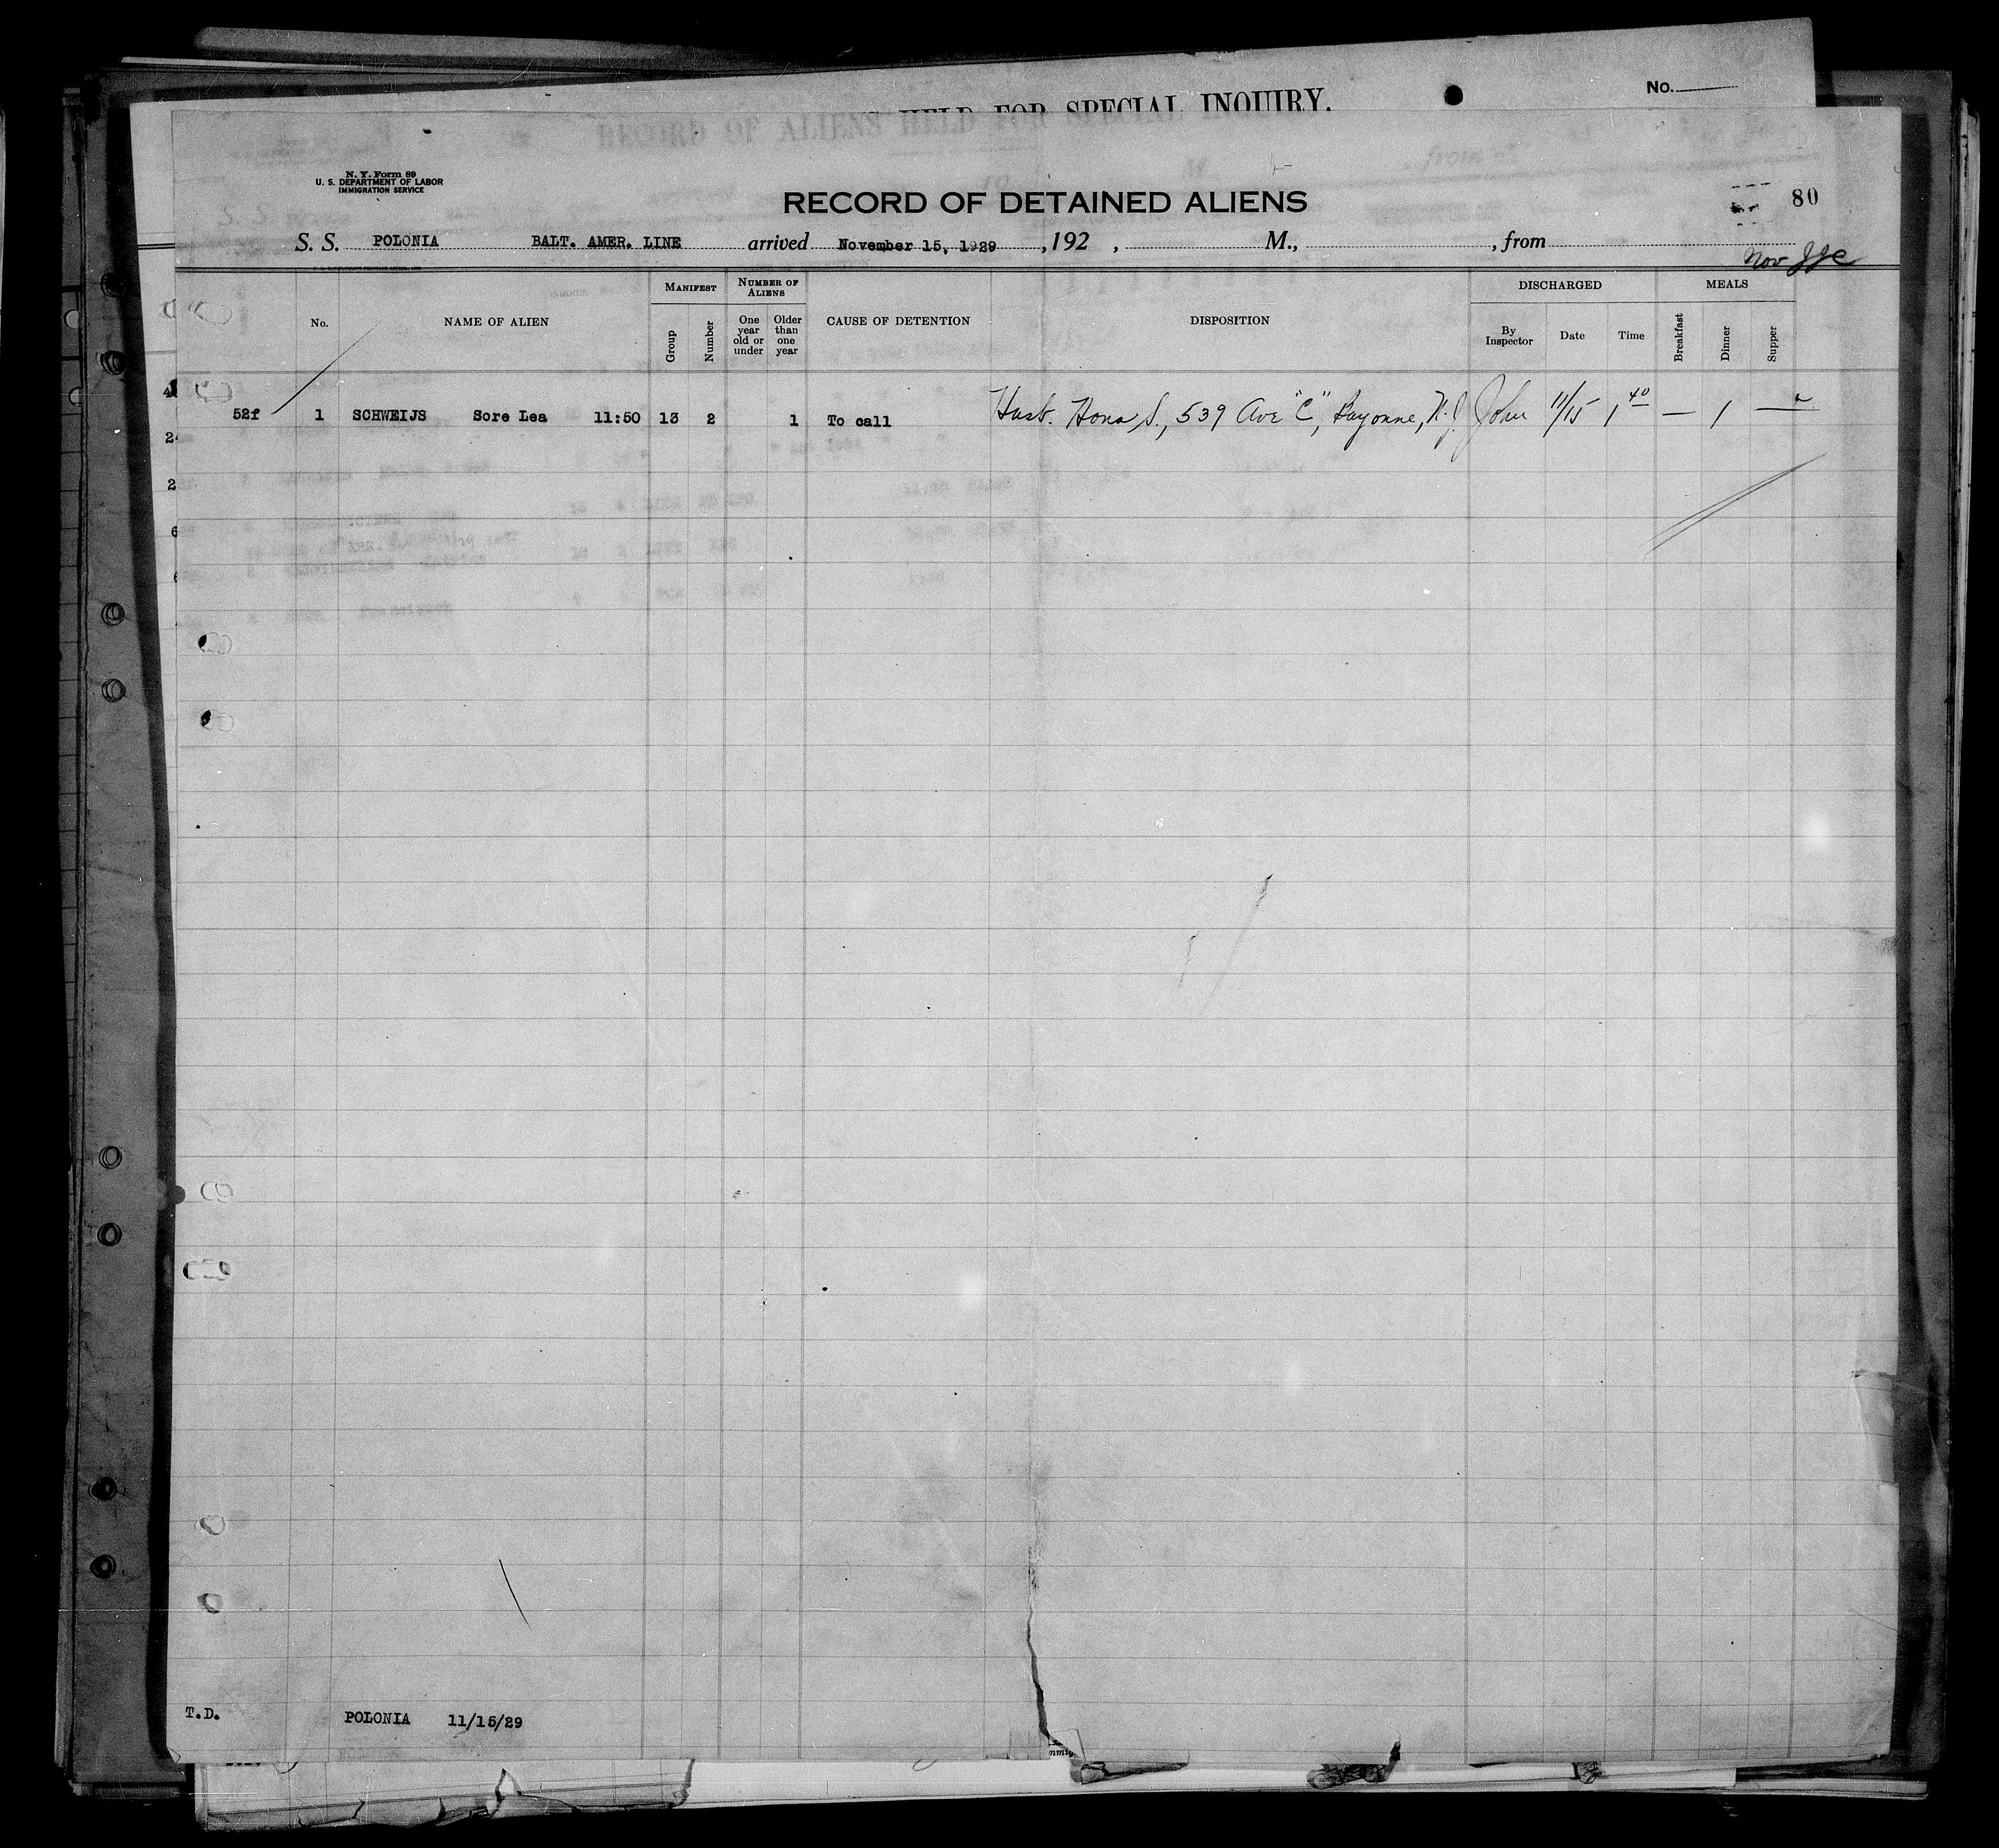 HELD FOR SPECIAL INQUIRY.
No.
RECORD OF ALIENS HELD FOR SPECIAL INQUIRY.
N. Y. Form 89
U. S. DEPARTMENT OF LABOR
IMMIGRATION SERVICE
RECORD OF DETAINED ALIENS
80
S. S. POLONIA BALT. AMER. LINE arrived November 15, 1929 , 192 , M., , from
Nov
No. NAME OF ALIEN MANIFEST Group Number NUMBER OF ALIENS One year old or under Older than one year CAUSE OF DETENTION DISPOSITION DISCHARGED By Inspector Date Time MEALS Breakfast Dinner Supper
52f 1 SCHWEIJS Sore Lea 11:50 13 2 1 To call Husb. S., 539 Ave "C", Bayonne, N.J. John 11/15 1 40 — 1 —
T.D. POLONIA 11/15/29